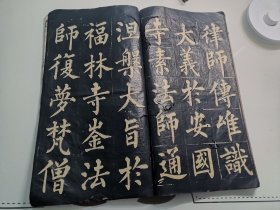 律師傳唯識
大義於安國
寺素法師通
涅槃大旨於
福林寺崟法
師復夢梵僧